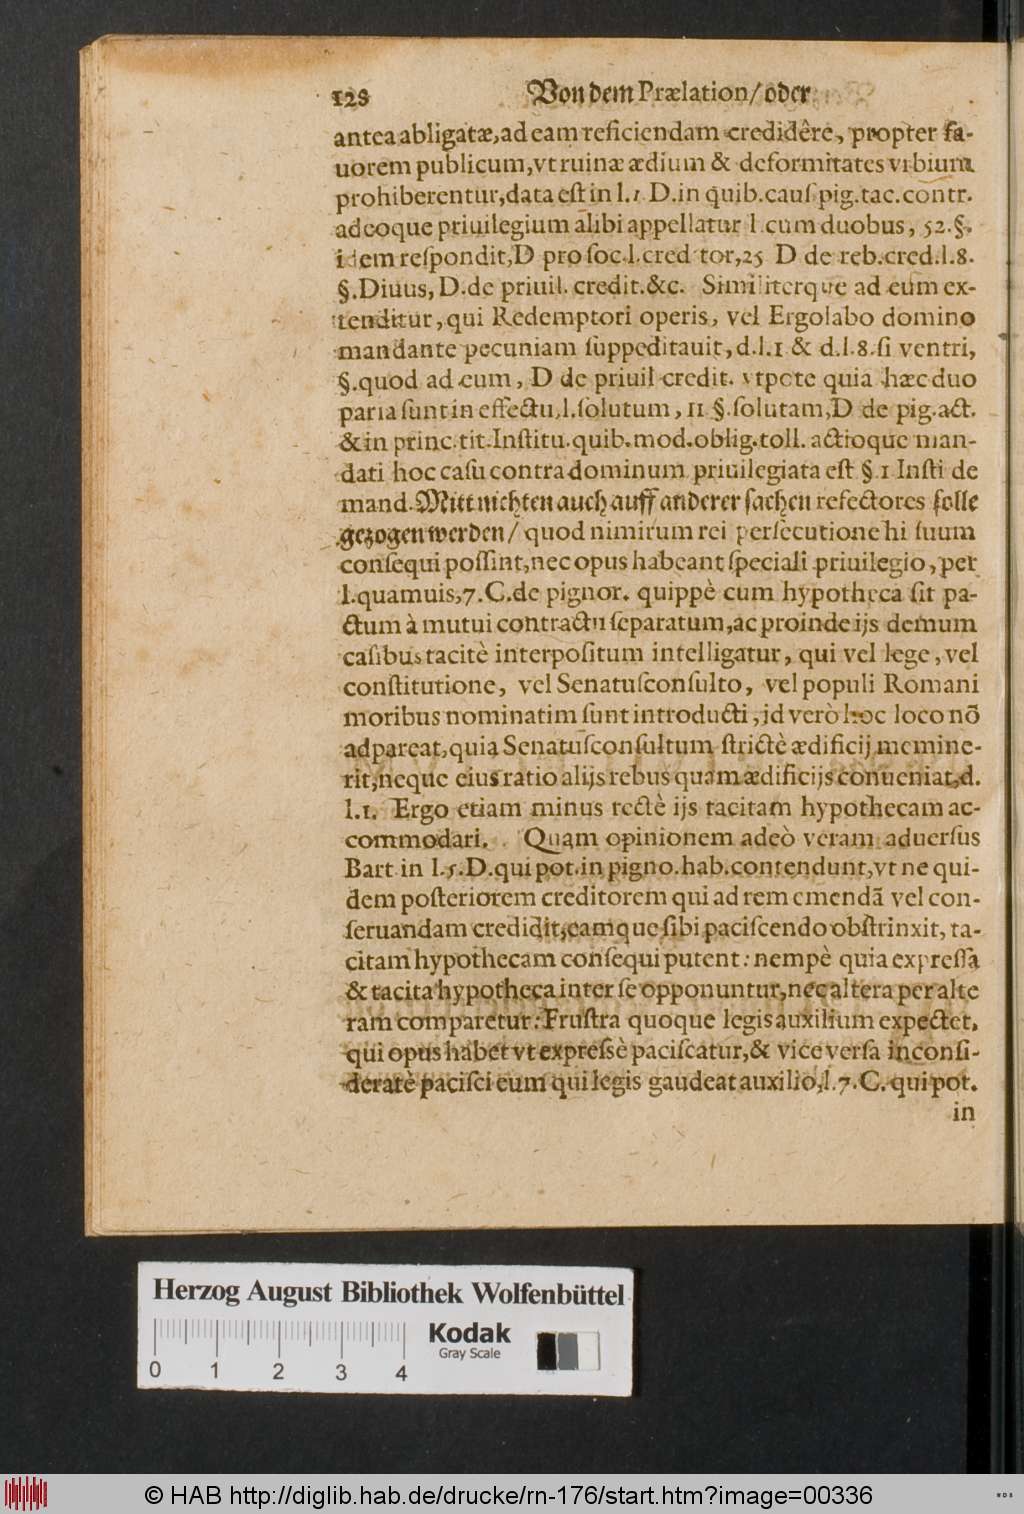 128 Von dem Prælation/ oder
antea abligatæ, ad eam reficiendam credidêre, propter fa-
uorem publicum, vt ruinæ ædium & deformitates vrbium
prohiberentur, data est in l. 1 D. in quib. caus pig. tac. contr.
adeoque priuilegium alibi appellatur l. cum duobus, 52. §.
idem respondit, D pro soc. l. creditor, 25 D de reb. cred. l. 8.
§. Diuus, D. de priuil. credit. &c. Similiterque ad eum ex-
tenditur, qui Redemptori operis, vel Ergolabo domino
mandante pecuniam suppeditauit, d. l. 1 & d. l. 8. si ventri,
§. quod ad eum, D de priuil credit. vtpote quia hæc duo
paria sunt in effectu, l. solutum, 11 §. solutam, D de pig. act.
& in princ. tit. Institu. quib. mod. oblig. toll. actioque man-
dati hoc casu contra dominum priuilegiata est §. 1 Insti de
mand. Mitt nichten auch auff anderer sachen refectores solle
gezogen werden/ quod nimirum rei persecutione hi suum
consequi possint, nec opus habeant speciali priuilegio, per
l. quamuis, 7. C. de pignor. quippè cum hypotheca sit pa-
ctum à mutui contractu separatum, ac proinde ijs demum
casibus tacitè interpositum intelligatur, qui vel lege, vel
constitutione, vel Senatusconsulto, vel populi Romani
moribus nominatim sunt introducti, id verò hoc loco nõ
adpareat, quia Senatusconsultum strictè ædificij memine-
rit, neque eius ratio alijs rebus quam ædificijs conueniat, d.
l. 1. Ergo etiam minus rectè ijs tacitam hypothecam ac-
commodari. Quam opinionem adeò veram aduersus
Bart in l. 5. D. qui pot. in pigno. hab. contendunt, vt ne qui-
dem posteriorem creditorem qui ad rem emendã vel con-
seruandam credidit, eamque sibi paciscendo obstrinxit, ta-
citam hypothecam consequi putent: nempè quia expressa
& tacita hypotheca inter se opponuntur, nec altera per alte
ram comparetur: Frustra quoque legis auxilium expectet,
qui opus habet vt expressè paciscatur, & vice versa inconsi-
deratè pacisci eum qui legis gaudeat auxilio, l. 7. C. qui pot.
in
Herzog August Bibliothek Wolfenbüttel
Kodak
Gray Scale
0 1 2 3 4
© HAB http://diglib.hab.de/drucke/rn-176/start.htm?image=00336